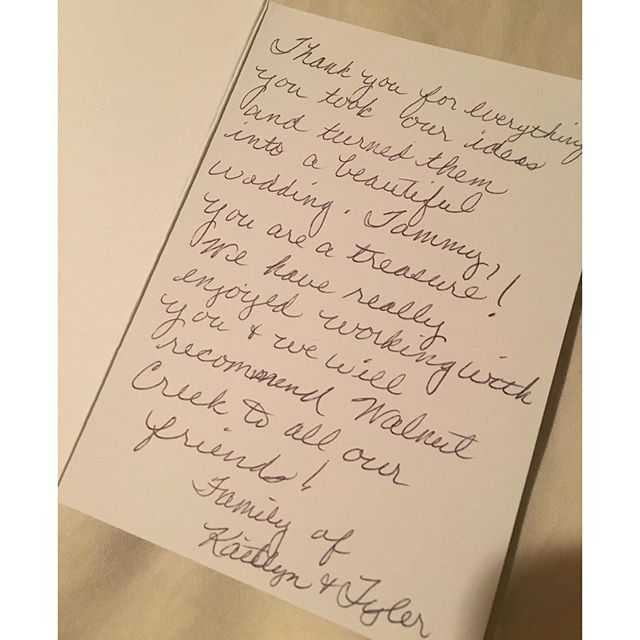 Thank you for everything
you took our ideas
and turned them
into a beautiful
wedding. Tammy,
you are a treasure!
We have really
enjoyed working with
you & we will
recommend Walnut
Creek to all our
friends!
Family of
Kaitlyn & Tyler